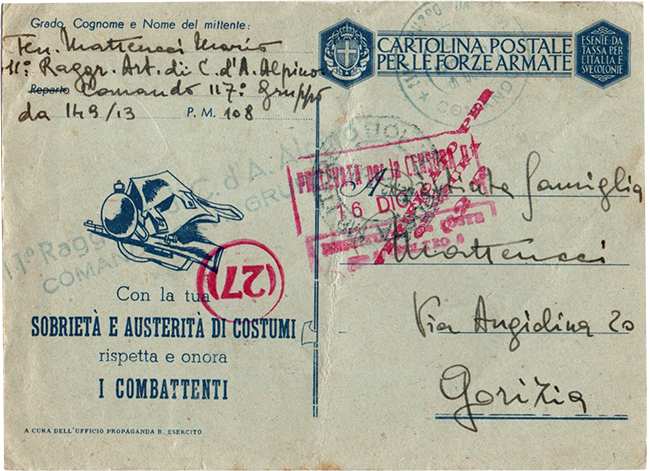 Grado, Cognome e Nome del mittente:
Ten. Matteucci Mario
11° Raggr. Art. di C. d'A. Alpino
Reparto Comando 117° Gruppo
da 149/13 P. M. 108
CARTOLINA POSTALE
PER LE FORZE ARMATE
ESENTE DA
TASSA PER
L'ITALIA E
SVE COLONIE
11° Ragg C. d'A. Al
COMAN GRU
(27)
per la CENSURA
16 DIC
Famiglia
Matteucci
Via Angiolina 20
Gorizia
Con la tua
SOBRIETÀ E AUSTERITÀ DI COSTUMI
rispetta e onora
I COMBATTENTI
A CURA DELL'UFFICIO PROPAGANDA R. ESERCITO